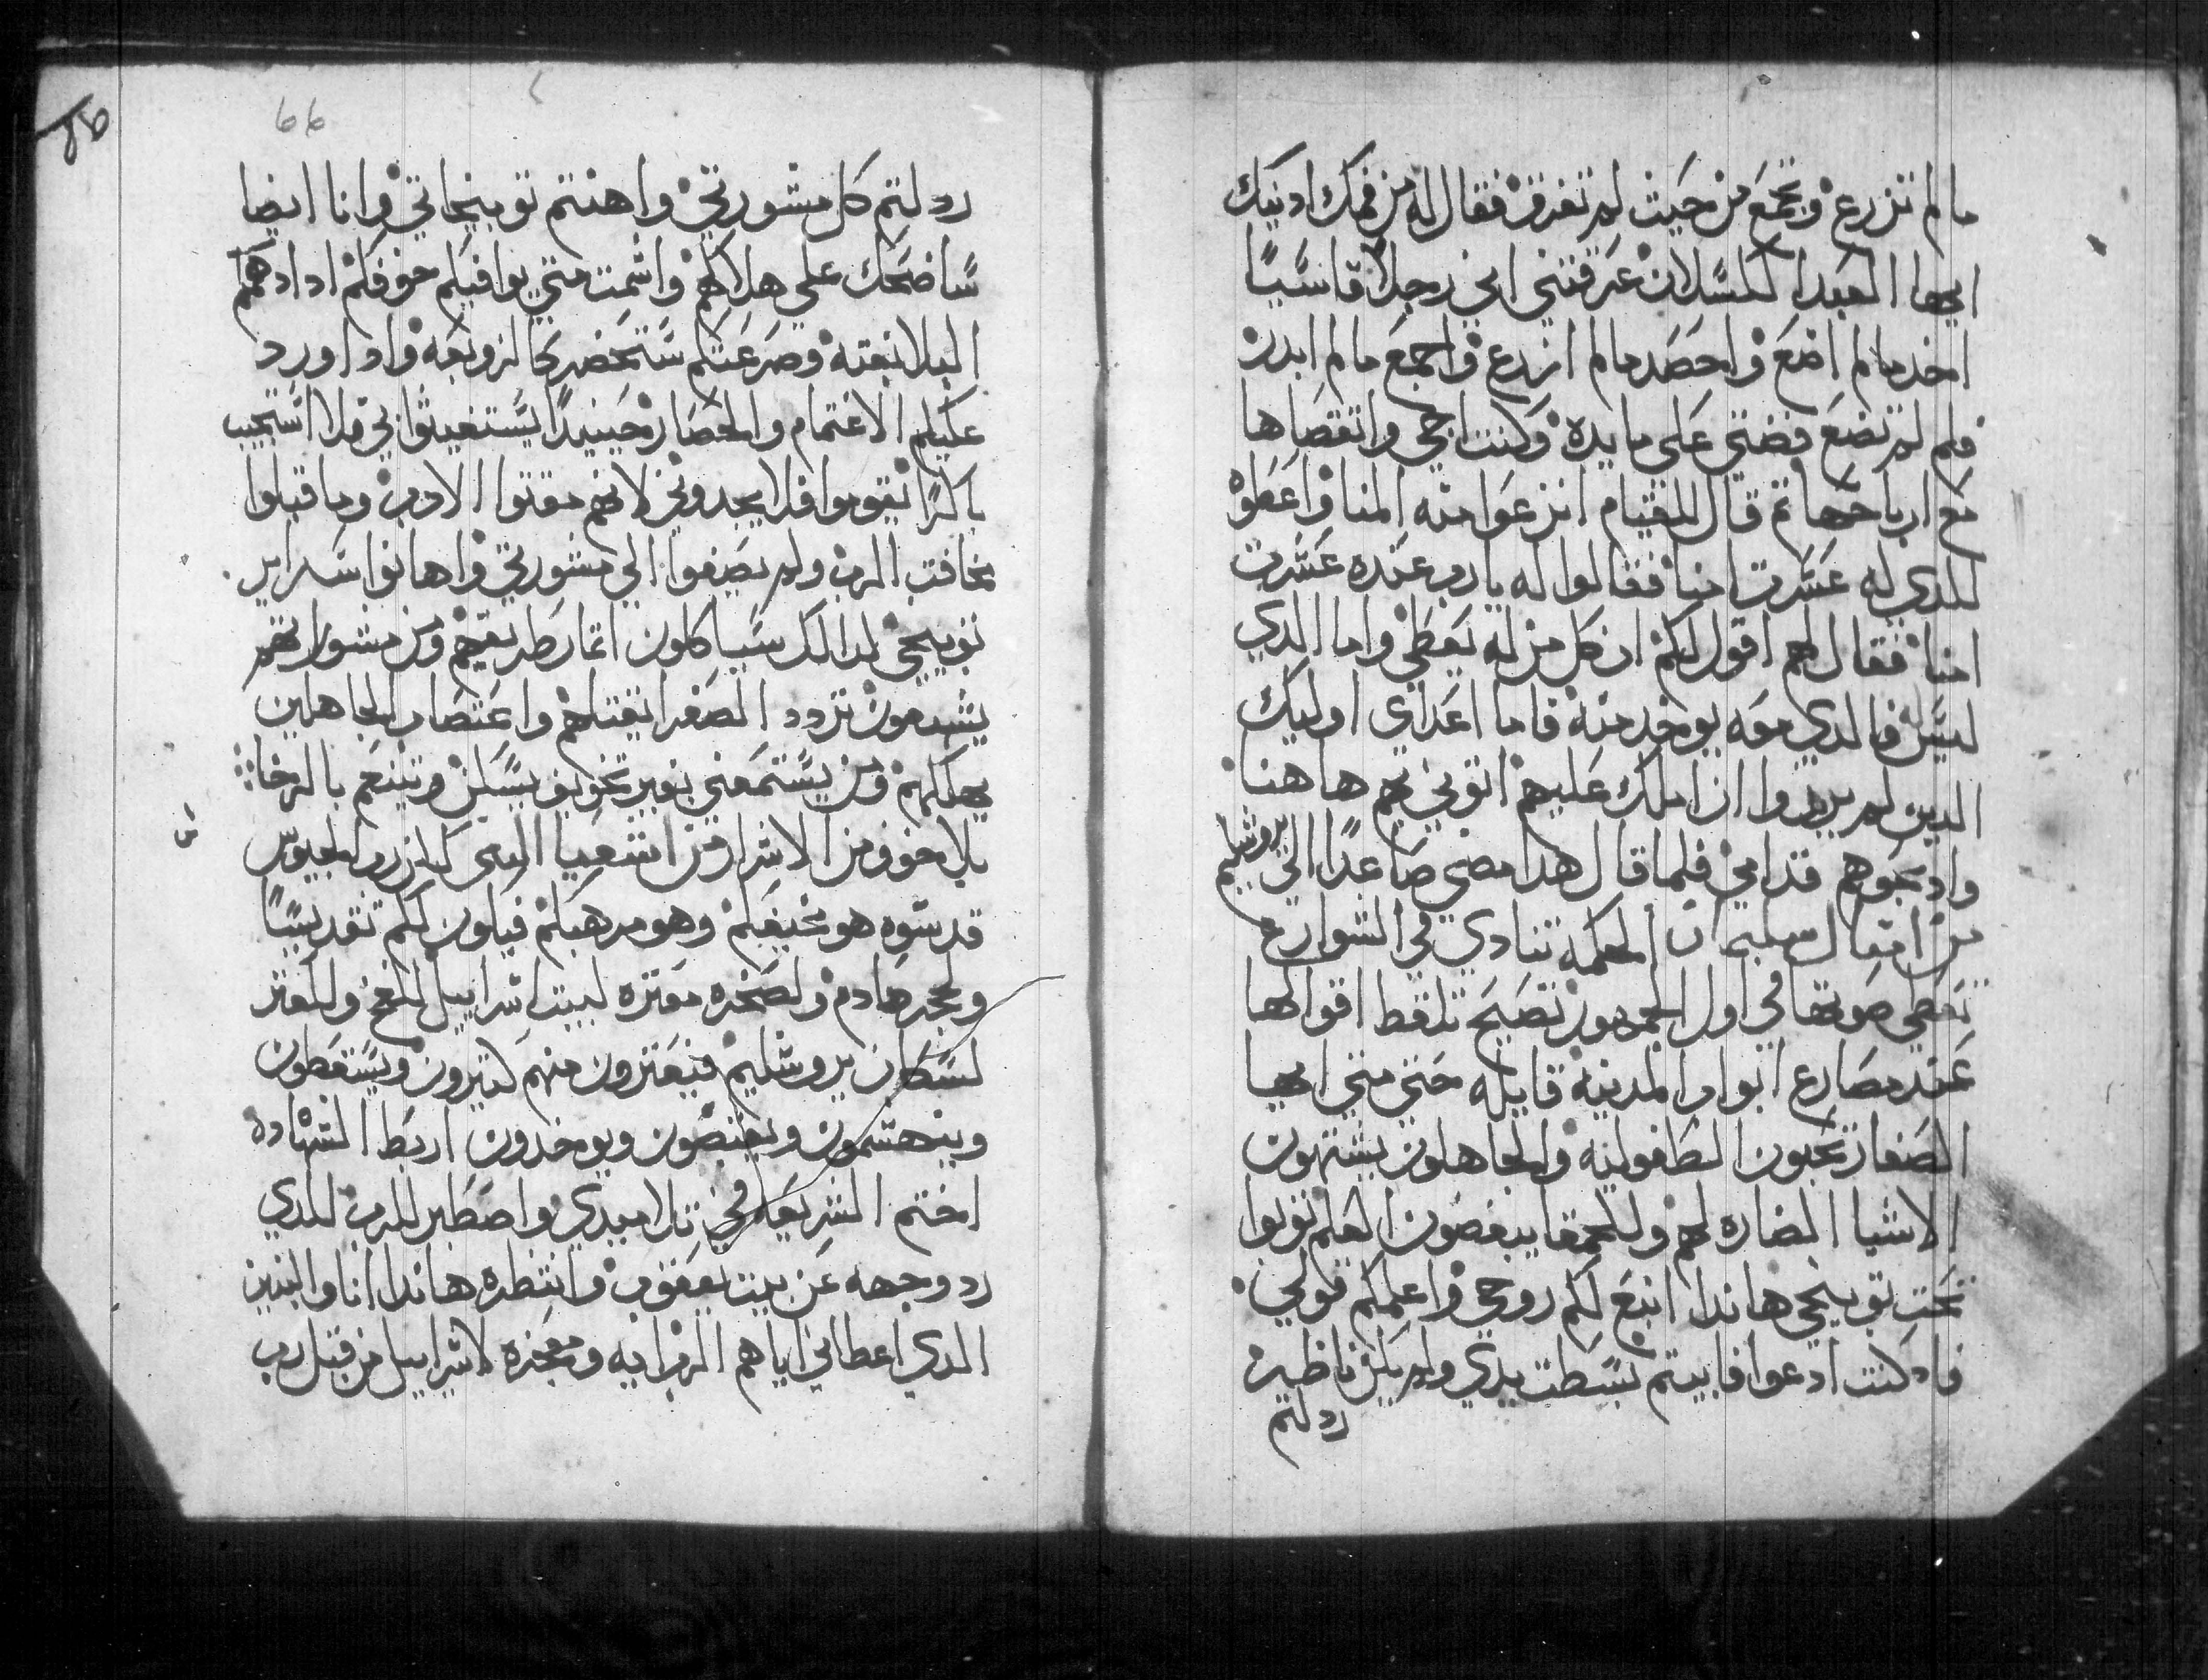 ما لم تزرع وتجمع من حيث لم تفرق فقال له من فمك ادينك
ايها العبد الكسلان عرفتني اني رجلا قاسيًا
اخد مالم اضع واحصد مالم ازرع واجمع مالم ابدر
فلم لم تضع فضتي علي مايده وكنت اجي واتقصاها
مع ارباحها تم قال للقيام انزعوا منه المنا واعطوه
للدي له عشرت امنا فقالوا له يارب عنده عشرت
امنا فقال لهم اقول لكم ان كل من له يعطي واما الدي
ليس له فالدي معه يوخد منه فاما اعداي اوليك
الدين لم يريدوا ان املك عليهم اتوني بهم هاهنا
وادبحوهم قدامي فلما قال هدا مضي صاعدًا الي يروشليم
من امتال سليمان الحكمه تنادي في الشوارع
تعطي صوتها في اول الجمهور تصيح تلفظ اقوالها
عند مصارع ابواب المدينه قايله حتي متي ايها
الصغار تحبون الطفوليه والجاهلون يشتهون
الاشيا الضاره لهم والحمقا يبغضون العلم توبوا
تحت توبيخي هاندا انبع لكم روحي واعلمكم قولي
فاد كنت ادعوا فابيتم بسطت يدي ولم يكن ناظير
ردلتم
66
ردلتم كل مشورتي واهنتم توبيخاتي وانا ايضا
ساضحك علي هلاككم واشمت متي يوافيكم خوفكم ادا دهمكم
البلا بغته وصرعتكم ستحضر كالزوبعه وادا ورد
عليكم الاغتمام والحصار حينيدًا يستغيثوا بي فلا استجيب
باكرًا يقوموا فلا يجدوني لانهم مقتوا الادب وما قبلوا
مخافت الرب ولم يصغوا الي مشورتي واهانوا ساير
توبيخي لدالك سياكلون اتمار طريقهم ومن مشوراتهم
يشبعون تردد الصغار يقتلهم واعتصار الجاهلين
يهلكهم ومن يستمعني بغير تخويف يسكن ويتنعم بالرخا
بلا خوف من الاشرار من اشعيا النبي لكن رب الجيوش
قدسوه هو مخيفكم وهو مرهبكم فيكون لكم تقديسًا
ولحجر صادم ولصخره معتره لبيت اسراييل للفخ وللعتر
لسكان يروشليم فيعترون منهم كتيرون ويسقطون
وينهشمون ويقنصون ويوخدون اربط الشهاده
اختم الشريعه في تلاميدي واصطبر للرب للدي
رد وجهه عن بيت يعقوب وانتظره هاندا انا والبنين
الدي اعطاني اياهم الرب ايه ومعجزه لاسراييل من قبل رب